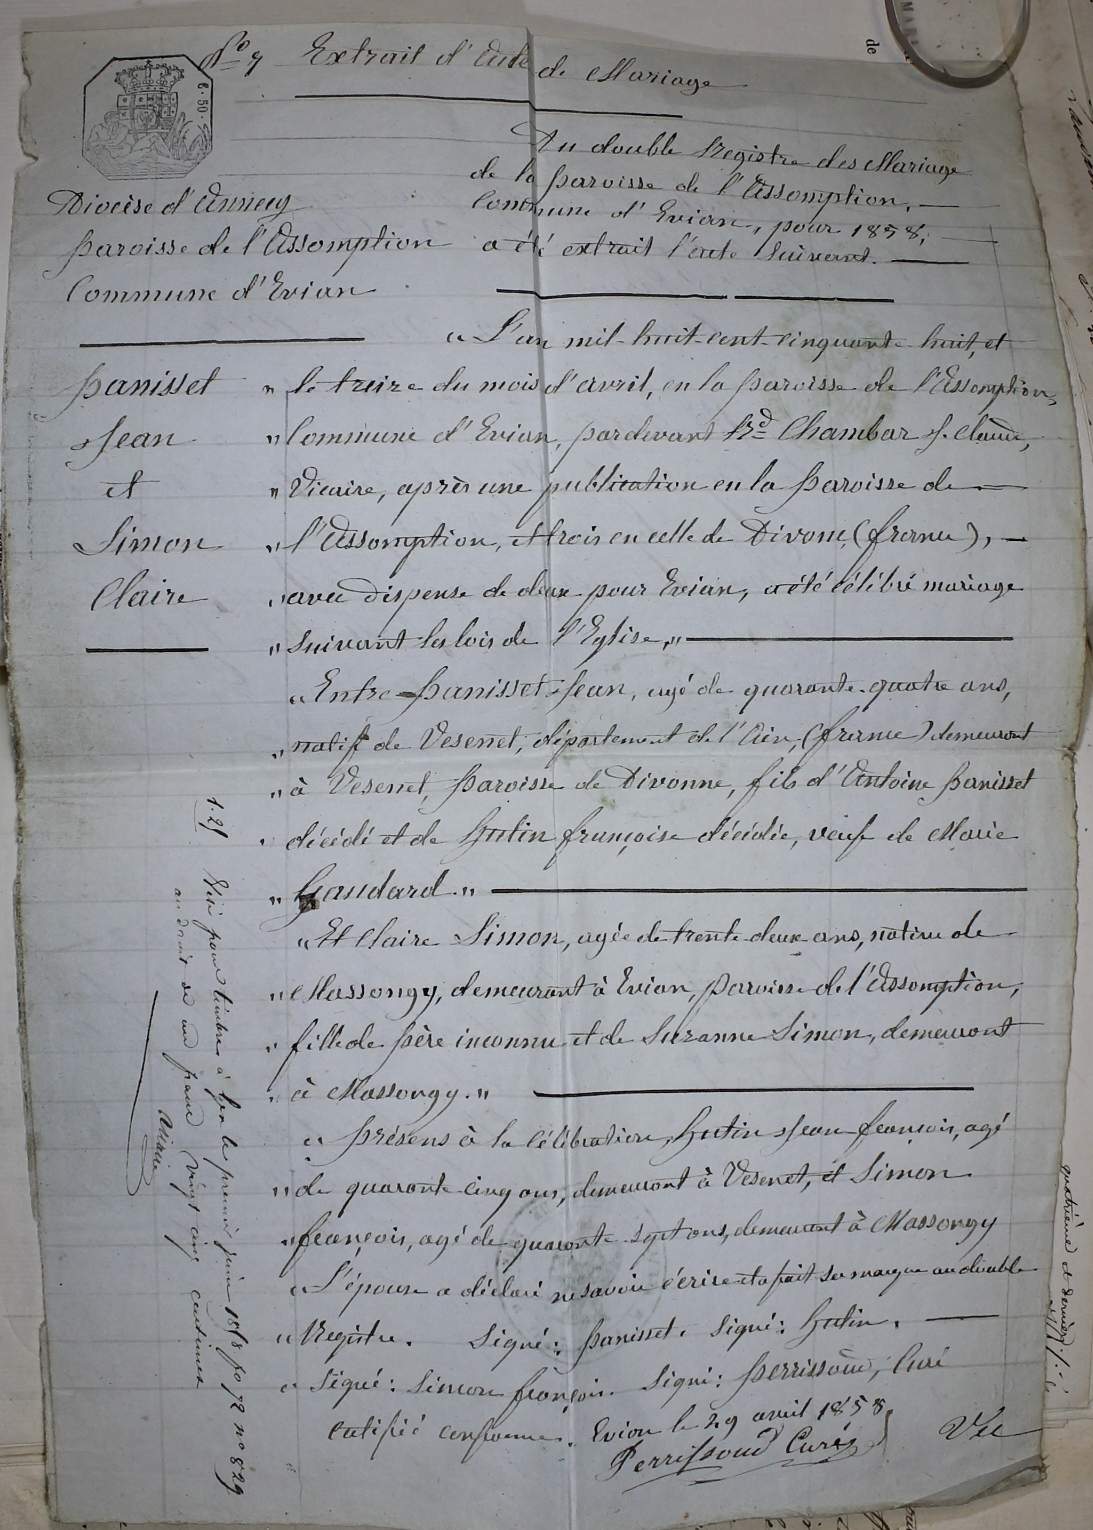 No 7 Extrait d'Acte de Mariage
C. 50.
Diocèse d'Annecy
paroisse de l'Assomption
Commune d'Evian
Du double Registre des Mariage
de la paroisse de l'Assomption,
Commune d'Evian, pour 1858,
a été extrait l'acte suivant.
Panisset
Jean
et
Simon
Claire
« L'an mil-huit-cent-cinquante-huit, et
" le treize du mois d'avril, en la paroisse de l'Assomption,
" Commune d'Evian, pardevant Rd Chambaz J. Claude,
" Vicaire, après une publication en la paroisse de
" l'Assomption, et trois en celle de Divonne, (france),
" avec dispense de deux pour Evian, a été célébré mariage
" suivant les lois de l'Eglise. "
« Entre Panisset Jean, agé de quarante-quatre ans,
" natif de Vesenet, département de l'Ain, (france) demeurant
" à Vesenet, paroisse de Divonne, fils d'Antoine Panisset
" décédé et de Hutin françoise décédée, veuf de Marie
" Gaudard. "
« Et Claire Simon, agée de trente-deux ans, native de
" Massongy, demeurant à Evian, paroisse de l'Assomption,
" fille de père inconnu et de Suzanne Simon, demeurant
" à Massongy. "
« présens à la célébration, Hutin Jean françois, agé
" de quarante-cinq ans, demeurant à Vesenet, et Simon
" françois, agé de quarante-sept ans, demeurant à Massongy
« L'épouse a déclaré ne savoir écrire et a fait sa marque au double
« Registre. Signé: Panisset. Signé: Hutin.
« Signé: Simon françois. Signé: Perrissoud, Curé
Certifié conforme. Evian le 29 avril 1858
Perrissoud Curé
Vu
1.25
Visé pour timbre à Gex le premier juin 1858 fo 72 no 829
au droit de un franc vingt cinq centimes
quatrième et dernier
de